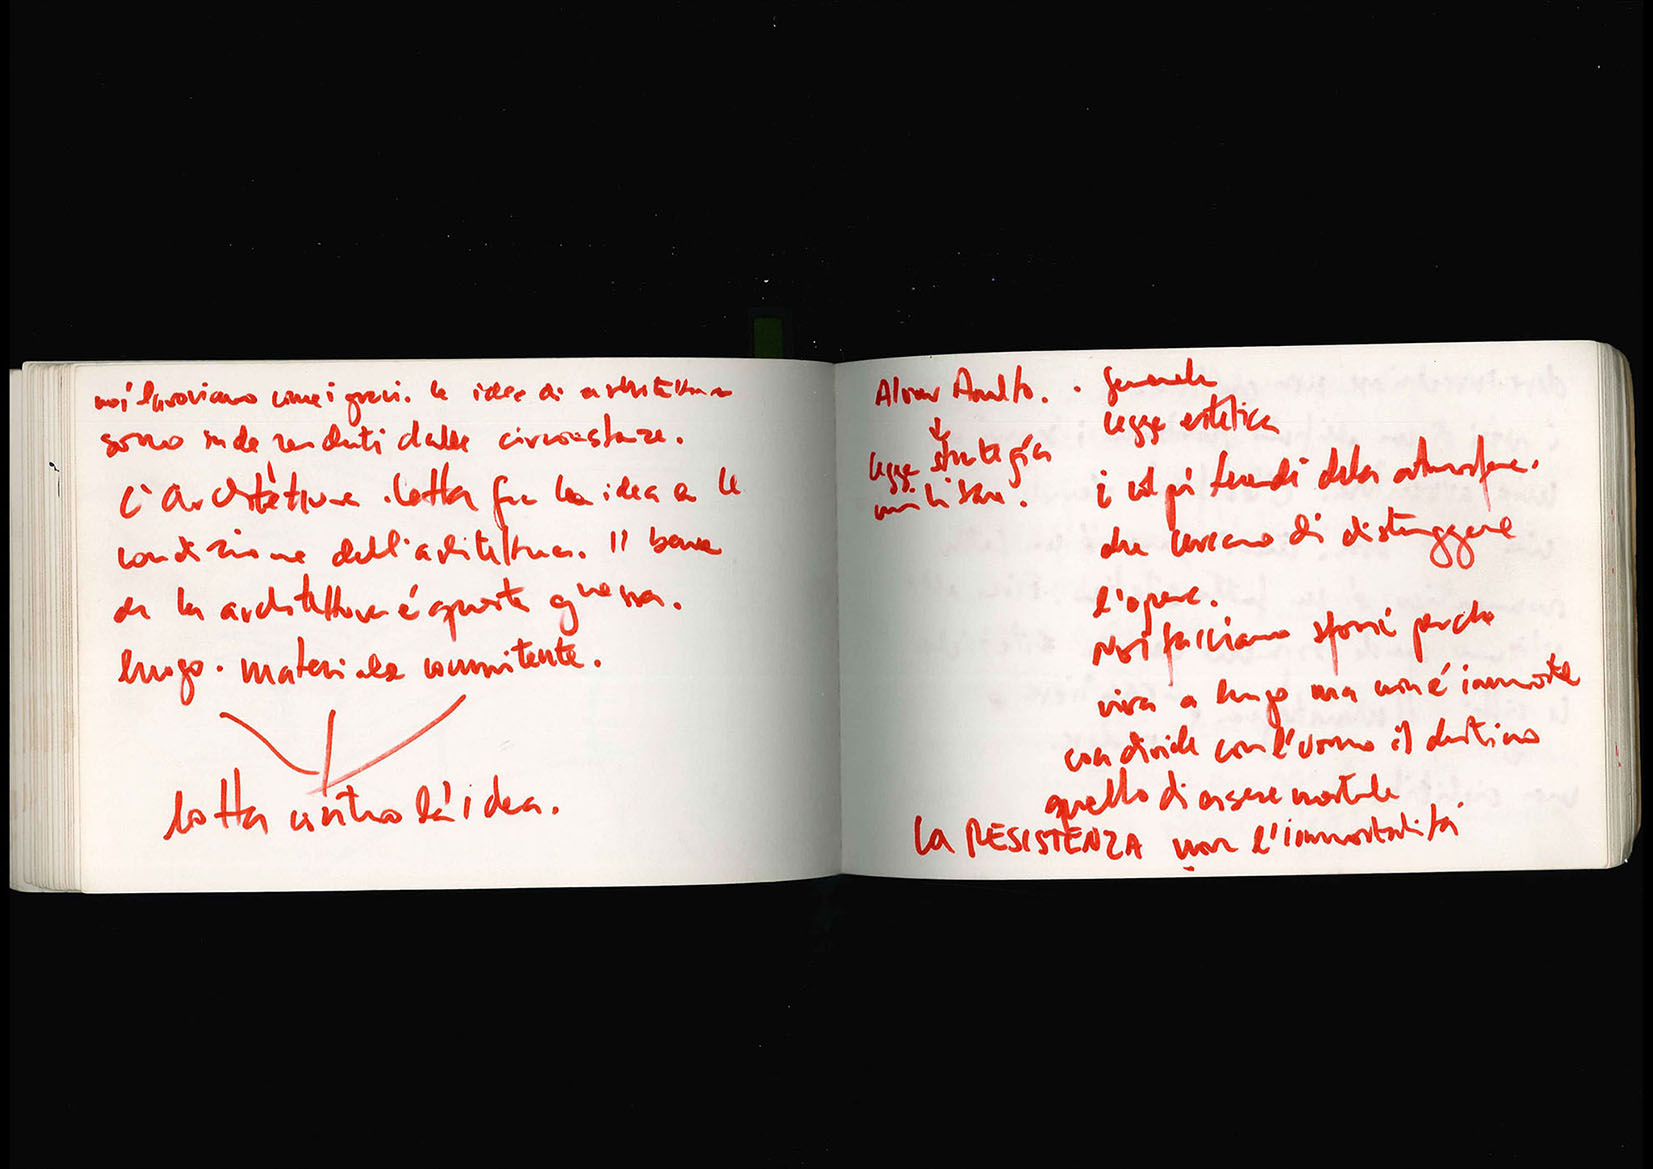 noi lavoriamo come i greci. le idee di architettura
sono dalle circostanze.
L'architettura . lotta fra la idea e le
condizione dell'architettura. Il bene
de la architettura é questa guerra.
luogo. materiale committente.
lotta contro la idea.
Alvar Aalto. . generale
legge estetica
legge strategia
militare.
i colpi tremendi della atmosfera.
che cercano di distruggere
l'opera.
noi facciamo sforzi perche
viva a lungo ma non é immortale
condivide con l'uomo il destino
quello di essere mortale
La RESISTENZA non l'immortalità